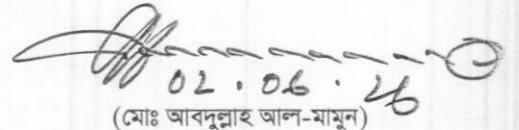 02.06.26
(মোঃ আবদুল্লাহ আল-মামুন)